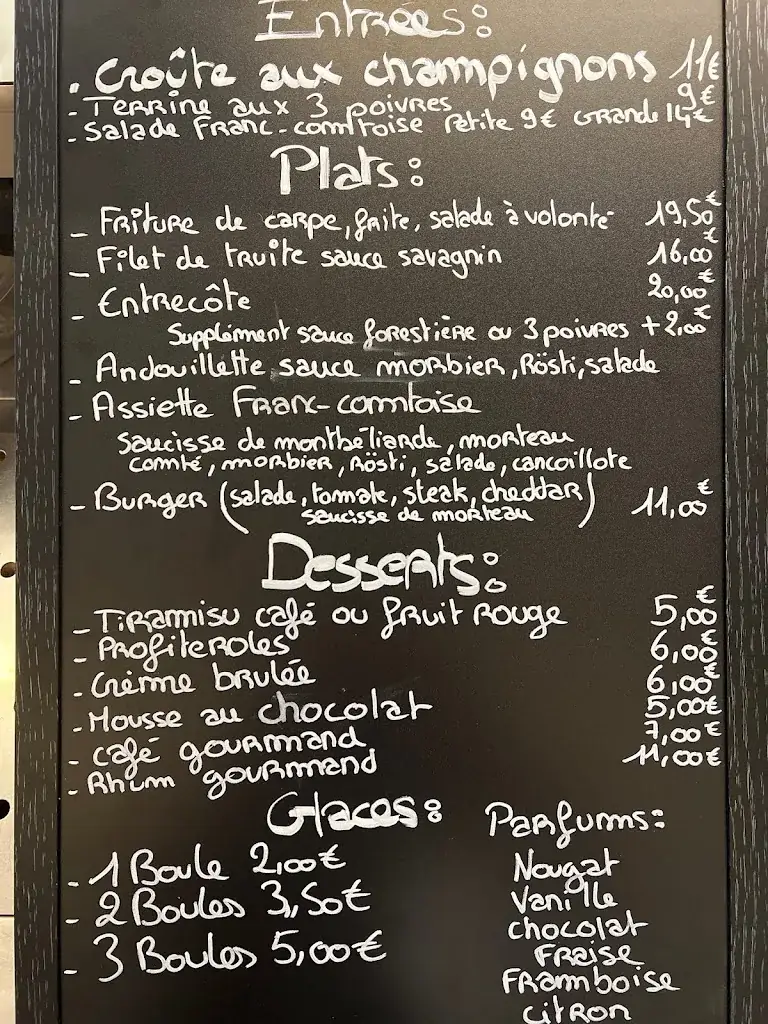 Entrées:
. Croûte aux champignons 11€
- Terrine aux 3 poivres 9€
- Salade Franc-comtoise Petite 9€ Grande 14€
Plats:
- Friture de carpe, frite, salade à volonté 19,50€
- Filet de truite sauce savagnin 16,00€
- Entrecôte 20,00€
Supplément sauce forestière ou 3 poivres +2,00€
- Andouillette sauce morbier, Rösti, salade
- Assiette Franc-comtoise
saucisse de montbéliarde, morteau
comté, morbier, Rösti, salade, cancoillote
- Burger (salade, tomate, steak, cheddar) 11,00€
saucisse de morteau
Desserts:
- Tiramisu café ou fruit rouge 5,00€
- Profiteroles 6,00€
- Crème brulée 6,00€
- Mousse au chocolat 5,00€
- café gourmand 7,00€
- Rhum gourmand 11,00€
Glaces: Parfums:
- 1 Boule 2,00€
- 2 Boules 3,50€
- 3 Boules 5,00€
Nougat
Vanille
chocolat
Fraise
Framboise
citron